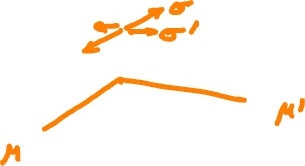 σ
σ'
μ
μ'